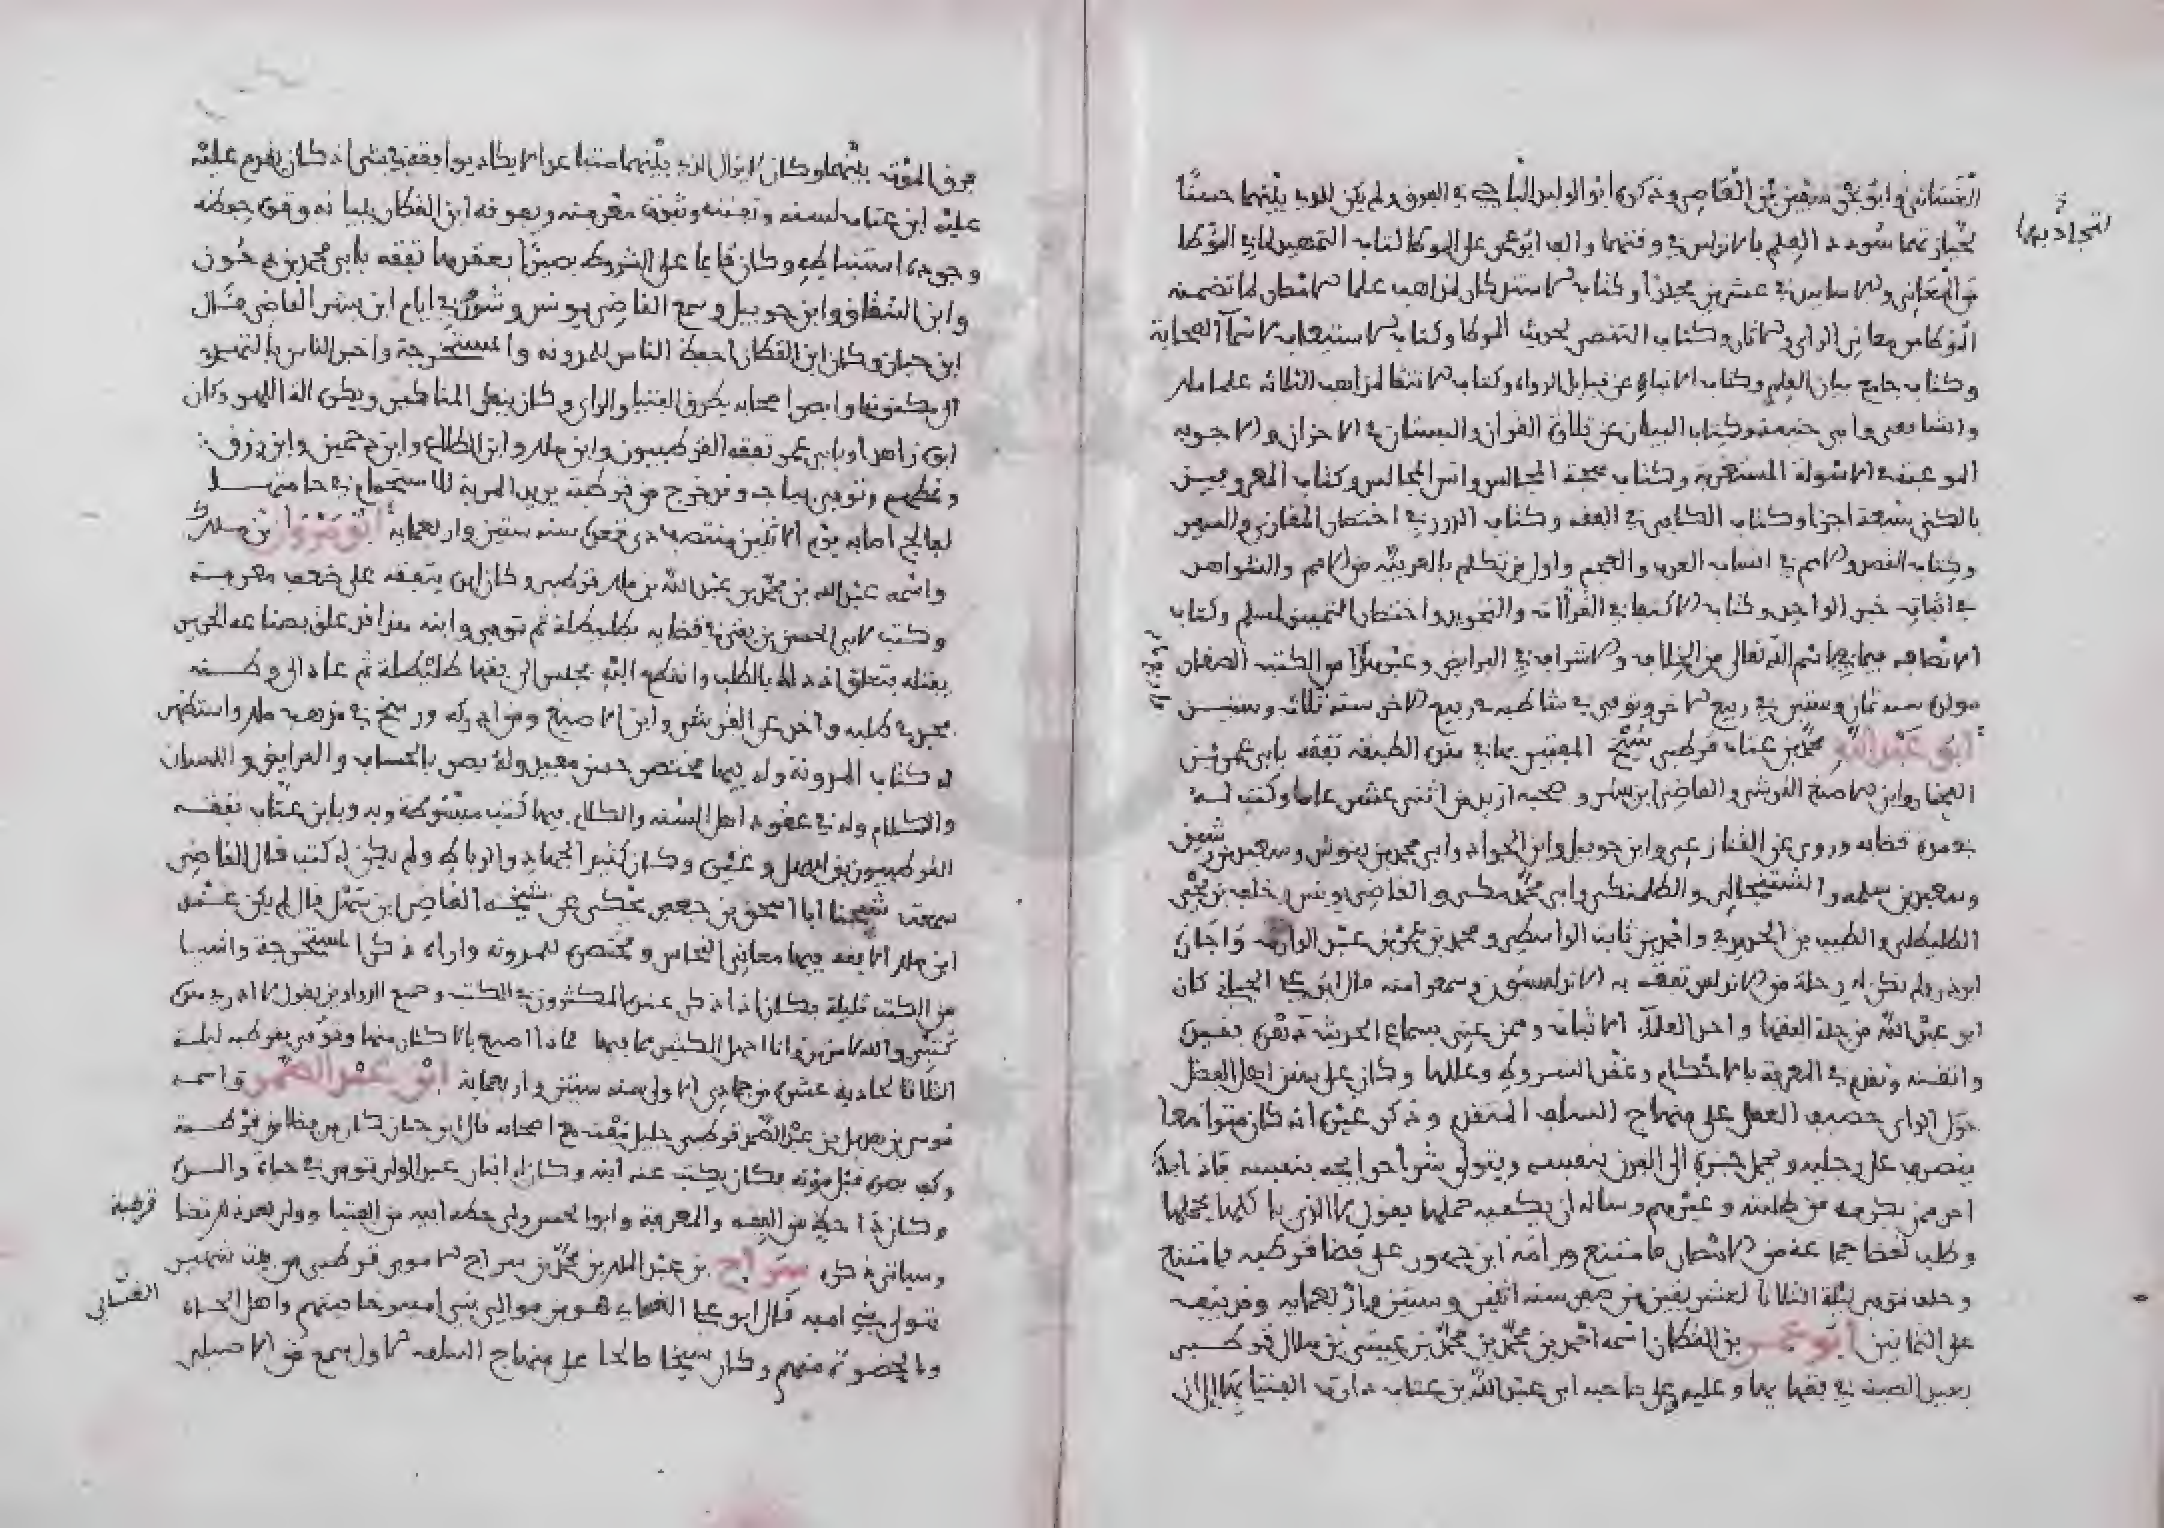 الغساني وابو بحر سفين بن العاصي وذكره ابو الوليد الباجي في الفرق ولم يكن الذي بينهما حسنا
لتجاذبهما
لتجاذبهما سؤدد العلم بالاندلس في وقتهما والف ابو عمر على الموطا كتاب التمهيد لما في الموطا
من المعاني والاسانيد في عشرين مجلدا وكتاب الاستذكار لمذاهب علما الامصار لما تضمنه
الموطا من معاني الراي والاثار وكتاب التقصي لحديث الموطا وكتاب الاستيعاب لاسما الصحابة
وكتاب جامع بيان العلم وكتاب الانباه عن قبايل الرواه وكتاب الانتقا لمذاهب الثلاثه علما ملك
والشافعي وابي حنيفة وكتاب البيان عن تلاوة القران والبستان في الاخوان والاجوبه
الموعبة في الاسولة المستغربة وكتاب بهجة المجالس وانس المجالس وكتاب المعروفين
بالكنى سبعة اجزا وكتاب الكافي في الفقه وكتاب الدرر في اختصار المغازي والسير
وكتاب القصد والامم في انساب العرب والعجم واول من تكلم بالعربية من الامم والشواهد
في اثبات خبر الواحد وكتاب الاكتفا في القراات والتجويد واختصار التمييز لمسلم وكتاب
الانصاف فيما في بسم الله تعالى من الخلاف والاشراف في الفرايض وغير هذا من الكتب الصغار
مولده سنه ثمان وستين في ربيع الاخر وتوفي في شاطبه في ربيع الاخر سنة ثلاث وستين
ابو عبد الله محمد بن عتاب قرطبي شيخ المفتين بها في هذه الطبقه تفقه بابي عمر بن
الفخار وابن الاصبغ القرشي والقاضي ابن بشر وصحبه ازيد من اثني عشر عاما وكتب له
في مدة قضايه وروى عن القنازعي وابن حوبيل وابن الحواد وابي محمد بن بنوش وسعيد بن رشيق
وسعيد بن سلمه والشنتجالي والطلمنكي وابي محمد مكي والقاضي يونس وخلف بن يحيى
الطليطلي والطيب بن الحديدي واحمد بن ثابت الواسطي ومحمد بن عمر بن عبد الوارث واجازه
ابو ذر ولم تكن له رحلة من الاندلس تفقه به الاندلسيون وسمعوا منه قال ابو علي الجياني كان
ابو عبد الله من جلة الفقها واحد العلما الاثبات وممن عني بسماع الحديث دهره فقيد
واتقنه وتقدم في المعرفة بالاحكام وعقد الشروط وعللها وكان على سنن اهل الفضل
جزل الراي حصيف العقل على منهاج السلف المتقدم وذكر غيره انه كان متواضعا
يتصرف على رجليه ويحمل خبزه الى الفرن بنفسه ويتولى شرا حوايجه بنفسه فاذا لقيه
احد ممن يكرمه من طلبته وغيرهم وساله ان يكفيه حملها يقول لا الذي ياكلها يحملها
وطلب لقضا جماعة من الامصار فامتنع ورامه ابن جهور على قضا قرطبه فامتنع
وحلف توفي ليلة الثلاثا لعشر بقين من صفر سنه اثنين وستين واربعمايه وقد نيف
على الثمانين ابو عمر بن القطان اسمه احمد بن محمد بن عيسى بن هلال قرطبي
بعيد الصيت في فقهايها وعليه وعلى صاحبه ابي عبد الله بن عتاب دارت الفتيا بها الى ان
فرق الموت بينهما وكان لا يزال الذي بينهما متباعدا لا يكاد يوافقه في شي اذ كان يقدم عليه
عليه ابن عتاب لسنه وتفننه وثقوب معرفته ويفوقه ابن القطان ببيانه وقوة حفظه
وجودة استنباطه وكان قايما على الشروط بصيرا بعقدها تفقه بابي محمد بن دحون
وابن الشقاق وابن حوبيل وسمع القاضي يونس وشوور في ايام ابن بشر القاضي قال
ابن حيان وكان ابن القطان احفظ الناس للمدونه والمستخرجة واخبر الناس بالتهدي
الى مكنونها وابصر اصحابه بطرق الفتيا والراي وكان ينكر المناكير ويكسر الة اللهو وكان
ابوه زاهدا وبابي عمر تفقه القرطبيون وابن ملك وابن الطلاع وابن حمدين وابن رزق
وغيرهم وتوفي بباجه وقد خرج من قرطبة يريد المرية للاستحمام في حامتها
لفالج اصابه يوم الاثنين منتصف ذي قعدة سنه ستين واربعمايه ابو مروان بن ملك
واسمه عبيد الله بن محمد بن عبد الله بن ملك قرطبي وكان ابن يتفقه على ضعف معرفته
وكتب لابي الحسن بن بقي في قضايه بطليطلة ثم توفي وابنه هذا قد علق بصناعة الحرير
بفتله فتعلق اذ ذاك بالطلب وانضم الى مجلس احد فقها طليطلة ثم عاد الى وطنه
فجد في طلبه واخذ عن القرشي وابن الاصبغ ومن ادركه ورسخ في مذهب ملك واستظهر
له كتاب المدونة وله فيها مختصر حسن مفيد وله بصر بالحساب والفرايض واللسان
والكلام وله في عقود اهل السنه والكلام فيها كتب مبسوطة وبه وبابن عتاب تفقه
القرطبيون بن سهل وغيره وكان كثير الجهاد والرباط ولم يكن له كتب قال القاضي
سمعت شيخنا ابا اسحق بن جعفر يحكي عن شيخه القاضي ابن سهل قال لم يكن عند
ابن ملك الا قفه فيها معاني النحاس ومختصره للمدونه واراه ذكر المستخرجة واشيا
من الكتب قليلة فكان اذا ذكر عنده المكثرون في الكتب وجمع الدواوين يقول لا ادري هذه
كتبي والله لاموتن وانا اجهل الكثير مما فيها فماذا اصنع بالاكثار منها وتوفي بقرطبه ليلة
الثلاثا لحادية عشرة من جمادى الاولى سنه ستين واربعماية ابو عبد الصمد واسمه
موسى بن هذيل بن عبد الصمد قرطبي جليل فقيه مع اصحابه قال ابن حيان كان من مفاخر قرطبة
وكف بصره قبل موته فكان يكتب عنه ابنه وكان له ابنان عبد الولي توفي في حياة والده
وكان ذا حظ من الفقه والمعرفة وابو الحسن ولي خطة ابيه من الفتيا وولي بعد ذلك قضا
قرطبة
وسياتي ذكره سراج بن عبد الله بن محمد بن سراج الاموي قرطبي من بيت شهير
بتولي بني امية قال ابو علي الغساني هو من موالي بني امية وخاصتهم واهل الجاه
الغساني
والحضوة منهم وكان شيخا صالحا على منهاج السلف الاول سمع من الاصيلي